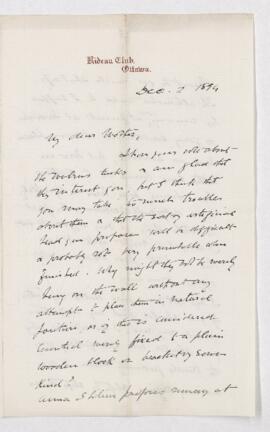 Rideau Club,
Ottawa.
Dec. 2 1894
My dear
I have your note about
the walrus tusks & am glad that
they interest you, but I think that
you may take too much trouble
about them & that the sort of artificial
head you propose will be difficult
& probably not very when
finished. Why might they not be merely
hung on the wall without any
attempt to place them in natural
position, or if this is considered
essential merely fixed to a plain
wooden block or bracket of some
kind?
Anna & I propose running at